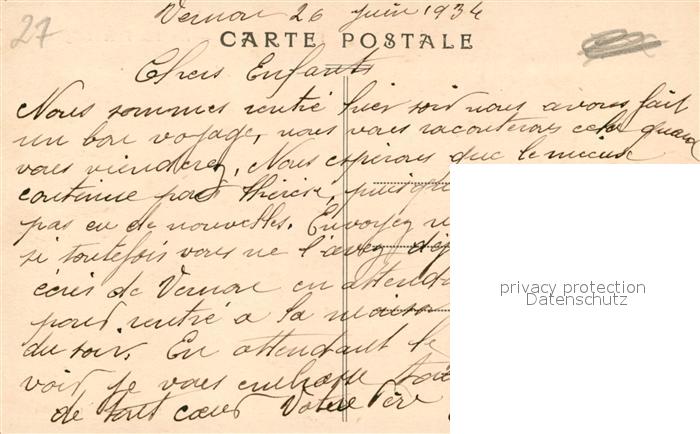 27
Vernon 26 juin 1934
CARTE POSTALE
Chers Enfants
Nous sommes rentré hier soir nous avons fait
un bon voyage, nous vous raconterons cela quand
vous viendrez. Nous espérons que le mieux
continue pour Thérèse, puisque
pas eu de nouvelles. Envoyez
si toutefois vous ne l'avez déj
écris de Vernon en attenda
pour rentré a la maison
du soir. En attendant le
voir, je vous embrasse
de tout cœur Votre Père
privacy protection
Datenschutz